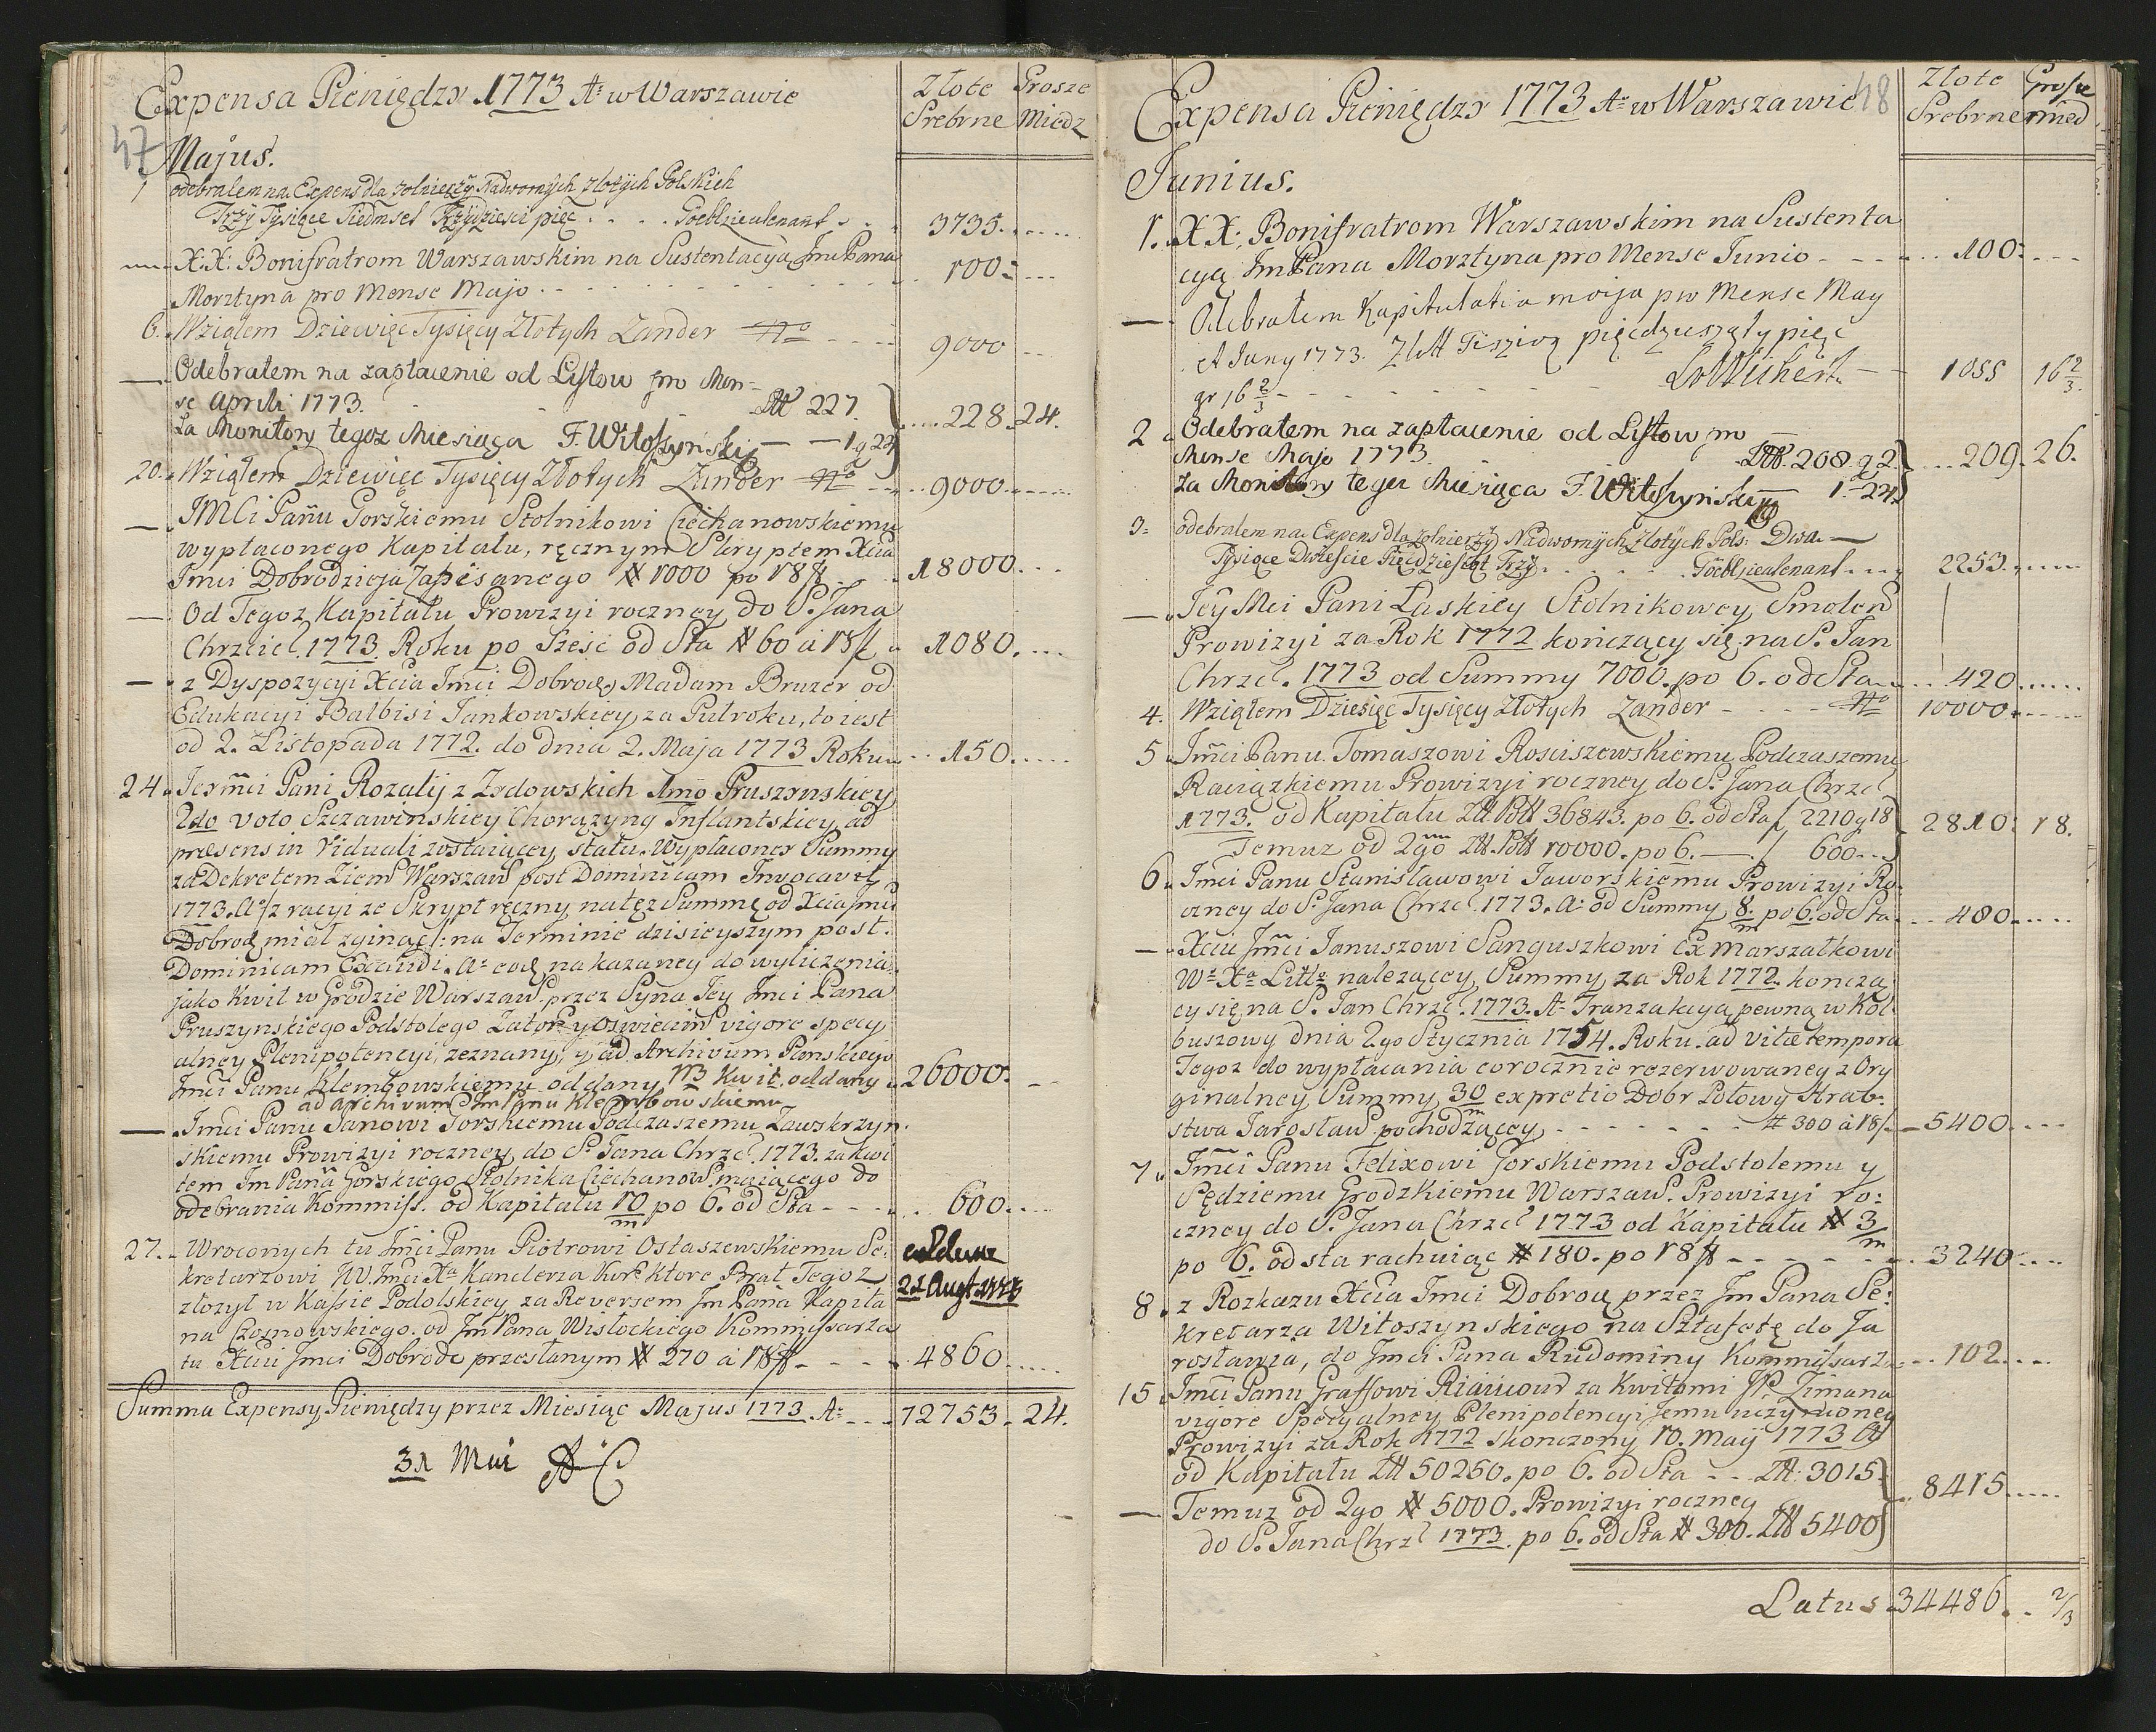 Expensa Pieniędzy 1773 Aº w Warszawie
Złote Grosze
Srebrne Miedz
47
Majus.
1 odebralem na Expens dla zolnierzÿ Nadwornÿch Zlotÿch Polskich
Trzÿ Tysiące Siedmset Trzÿdziesci pięc . . . . Goebl Lieutenant . . . 3735. . . . .
X:X: Bonifratrom Warszawskim na Sustentacyą Jm Pana
Morztyna pro Mense Majo . . . 100: . . .
6. Wziąłem Dziewięc Tysięcy Złotych Zander 9000 . . .
— Odebrałem na zapłacenie od Listow pro Men=
se Aprili 1773. . . Złł 227.
za Monitory tegoz Miesiąca F. Witoszynski — — 1 g 24 } . . . . 228. 24.
20. Wziąłem Dziewięc Tysięcy Złotych Zander . . 9000. . . . . .
— JMCi Panu Gorskiemu Stolnikowi Ciechanowskiemu
wypłaconego Kapitału, ręcznym Skryptem Xcia
Jmci Dobrodzieja Zapisanego # 1000 po 18 f . . . 18000. . . .
— Od Tegoz Kapitału Prowizyi roczney do S. Jana
Chrzcic. 1773. Roku po Sześć od Sta # 60 á 18 f 1080. . . .
— z Dyspozycyi Xcia Jmci Dobrodz. Madam Bruzer od
Edukacyi Balbisi Jankowskiey za Pułroku, to iest
od 2. Listopada 1772. do dnia 2. Maja 1773 Roku . . 150. . . . .
24. Jeymci Pani Rozalij z Zydowskich 1mo Pruszynskiey
2do voto Szczawinskiey Chorązyny Inflantskiey ad
praesens in viduali zostaiącey statu. Wypłaconey Summy
za Dekretem Ziems Warszaw post Dominicam Invocavit
1773. Aº z racyi ze Skrypt ręczny na tęz Summę od Xcia Jmci
Dobrodz miał zginąć: na Terminie dzisieyszym post.
Dominicam Exaudi. Aº eod. nakazaney do wyliczenia,
jako Kwit w Grodzie Warszaw. przez Syna Jey Jmci Pana
Pruszynskiego Podstolego Zator. y Oswiecim vigore specy
alney Plenipotencyi, zeznany, y ad Archivum Panskiego
Jmci Panu Klembowskiemu oddany kwit. oddany 26000: — —
ad archivum Jm Panu Klembowskiemu
— Jmci Panu Janowi Gorskiemu Podczaszemu Zawskrzyn
skiemu Prowizyi roczney do S. Jana Chrzc. 1773. za kwi
tem Jm Pana Gorskiego Stolnika Ciechanow. maiącego do
odebrania Kommiss. od Kapitału 10/m po 6. od Sta - - - . . 600. . . .
27. Wroconych tu Jmci Panu Piotrowi Ostaszewskiemu Se:
kretarzowi JW. Jmci Xa Kanclerza Kor. ktore Brat Tegoz
złozył w Kassie Podolskiey za Reversem Jm Pana Kapita
na Czosnowskiego. od Jm Pana Wisłockiego Kommissarza
tu Xciu Jmci Dobrodz przesłanym # 270 á 18 f - - - . 4860. . . .
21 Augt
Summa Expensy Pieniędzy przez Miesiąc Majus 1773 Aº - - - 72753. 24.
31 Mai AC
Expensa Pieniędzy 1773 Aº w Warszawie
48
Złote Grosze
Srebrne mied
Junius.
1. XX: Bonifratrom Warszawskim na Sustenta
cyą Jm Pana Morztyna pro Mense Junio - - - . . . 100: . . .
— Odebrałem Kapitulatia moija pro Mense May
et Juny 1773. Złłt Tiszioą pięcdziesząty pięc
gr 16 2/3 - - - - - - Wichert. 1055 16 2/3.
2. Odebrałem na zapłacenie od Listow pro
Mense Majo 1773. Złł. 208. g 2.
za Monitory tegoz Miesiąca F. Witoszynski 1. 24. } . . . 209. 26.
3= odebralem na Expens dla zolnierzÿ Nadwornÿch Zlotÿch Pols: Dwa —
Tÿsiące Dwieście Pięcdziesiąt Trzÿ . . . . . . Goebl Lieutenant . . . . 2253. . . . . .
— Jey Mci Pani Łaskiey Stolnikowey Smolen
Prowizyi za Rok 1772 kończący się na S. Jan
Chrzc. 1773 od Summy 7000. po 6. od Sta . . . 420 . . . . . .
4. Wziąłem Dziesięc Tysięcy Złotych Zander - - - - 10000. . . . . .
5. Jmci Panu Tomaszowi Rosciszewskiemu Podczaszemu
Raciązkiemu Prowizyi roczney do S. Jana Chrzc
1773. od Kapitału Złł Poll 36843. po 6. od Sta f 2210 g 18
Temuz od 2go Złł. Poll 10000. po 6. — . f 600 . . } 2810: 18.
6. Jmci Panu Stanisławowi Jaworskiemu Prowizyi Ro:
czney do S. Jana Chrzc. 1773. Aº od Summy 8/m po 6. od Sta . . . 480. . . . .
— Xciu Jmci Januszowi Sanguszkowi Ex Marszałkowi
Wº Xº Littº nalezącey Summy za Rok 1772. kończą
cy się na S. Jan Chrzc. 1773. Aº Tranzakcyą pewną w Kol
buszowy dnia 2go Stycznia 1754. Roku. ad vitae tempora
Tegoz do wypłacania corocznie rezerwowaney z Ory
ginalney Summy 30/m ex pretio Dobr Połowy Hrab:
stwa Jarosław pochodzącey - - - - - - - # 300 á 18 f — 5400. . . .
7. Jmci Panu Felixowi Gorskiemu Podstolemu y
Sędziemu Grodzkiemu Warszaw. Prowizyi ro:
czney do S. Jana Chrzc 1773 od Kapitału # 3/m
po 6. od sta rachuiąc # 180. po 18 f - - - - - . 3240: . . .
8. z Rozkazu Xcia Jmci Dobrodz przez Jm Pana Se:
kretarza Witoszynskiego na Sztafetę do Ja
rosławia, do Jmci Pana Rudominy Kommissarza . . . 102. . . .
15. Jmci Panu Graffowi Riaucour za Kwitami JP. Zimana
vigore Specyalney Plenipotencyi Jemu uczynioney
Prowizyi za Rok 1772 skonczony 10. Maij 1773 Aº
od Kapitału Złł 50250. po 6. od Sta - - Złł: 3015
— Temuz od 2go # 5000. Prowizyi roczney
do S. Jana Chrzc 1773. po 6. od Sta # 300. Złł 5400 } . . 8415. . . . .
Latus 34486. . 2/3